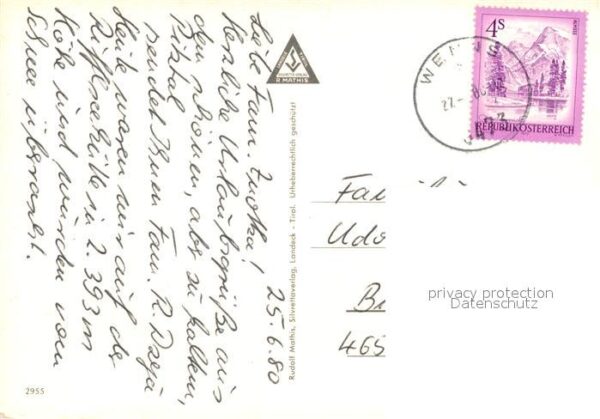 25.6.80
Liebe Fam. Zwotka!
Herzliche Urlaubsgrüße aus
dem schönen, aber so kaltem,
Pitztal
sendet Ihnen Fam. R. Dzeja
Heute waren wir auf der
Rifflseehütte in 2.393m
Höhe und wurden vom
Schnee überrascht.
2955
R. MATHIS
Rudolf Mathis, Silvrettaverlag, Landeck - Tirol. Urheberrechtlich geschützt!
4S
REPUBLIK ÖSTERREICH
ALMSEE
WENNS
6473
Fa
Udo
B
465
privacy protection
Datenschutz